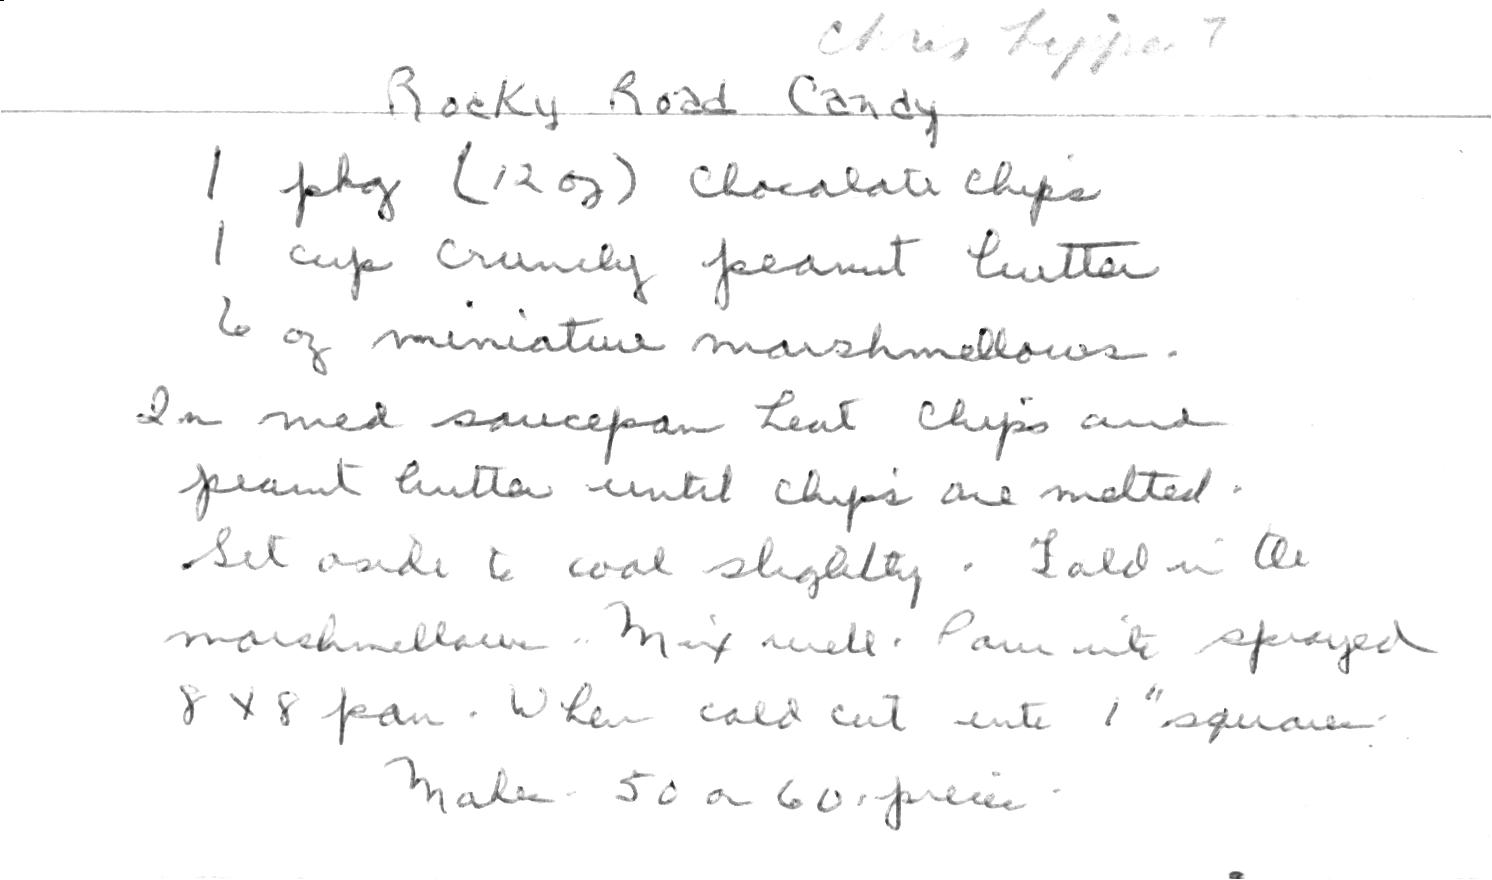 Chris Lippert
Rocky Road Candy
1 pkg (12 oz) Chocolate chips
1 cup crunchy peanut butter
6 oz miniature marshmellows.
In med saucepan heat chips and
peanut butter until chips are melted.
Set aside to cool slightly. Fold in the
marshmellows. Mix well. Pour into sprayed
8 x 8 pan. When cold cut into 1" squares.
Makes 50 or 60 pieces.